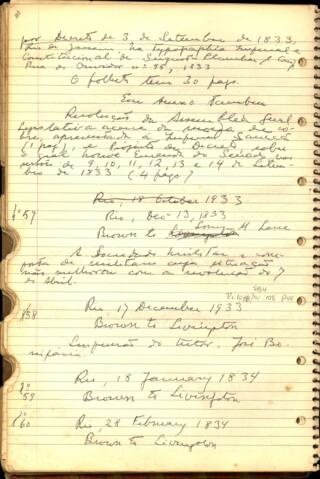 por Decreto de 3 de Setembro de 1833,
Rio de Janeiro Na Typographia Imperial e
Constitucional de Seignot Plancher & Comp
Rua do Ouvidor nº 95, 1833
O folheto tem 30 pags.
Em Anexo tambem
Resolução da Assembléa Geral
Legislativa acerca da moeda de co-
bre, apresentada á Imperial Sancção
(1 pag), e Projecto do Decreto sobre
o qual houve Emenda do Senado nas
sessões de 9, 10, 11, 12, 13 e 14 de Setem-
bro de 1833 (4 pags)
Rio, 18 October 1933
nº 57
Rio, Dec 13, 1833
Brown to
A Sociedade Militar e com-
posta de militares cuja situação
não melhorou com a revolução de 7
de Abril.
58
Rio 17 December 1933
Brown to Livingston
Suspensão do tutor. José Bo-
nifacio.
nº 59
Rio, 18 January 1834
Brown to Livingston
nº 60
Rio, 28 February 1834
Brown to Livingston